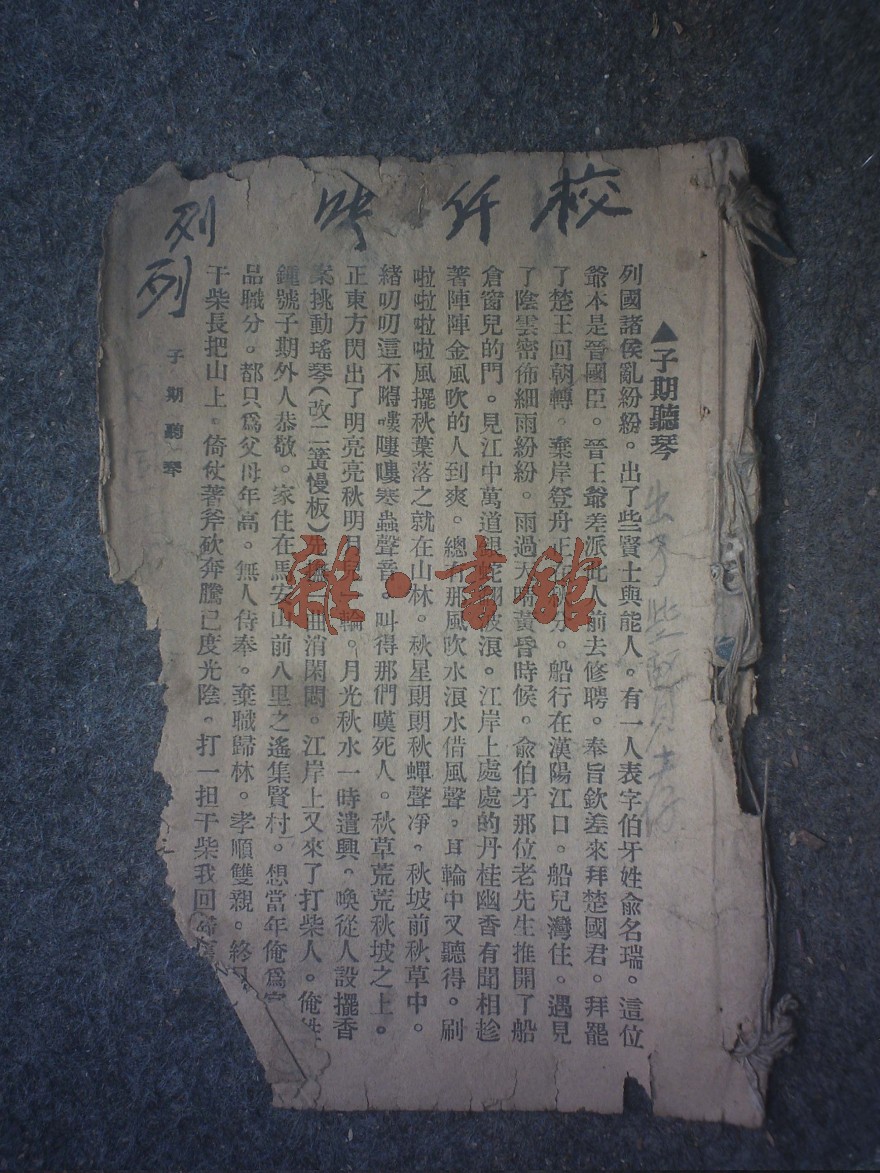 校
列
列
▲子期聽琴
列國諸侯亂紛紛。出了些賢士與能人。有一人表字伯牙姓俞名瑞。這位
爺本是晉國臣。晉王爺差派此人前去修聘。奉旨欽差來拜楚國君。拜罷
了楚王回朝轉。棄岸登舟正在。船行在漢陽江口。船兒灣住。遇見
了陰雲密佈細雨紛紛。雨過天晴黃昏時候。俞伯牙那位老先生推開了船
倉窗兒的門。見江中萬道銀蛇翻波浪。江岸上處處的丹桂幽香有聞相趁
著陣陣金風吹的人到爽。總有那風吹水浪水借風聲。耳輪中又聽得。刷
啦啦啦啦風擺秋葉落之就在山林。秋星朗朗秋蟬聲凈。秋坡前秋草中。
緒叨叨這不㝵嘍嘍嘍寒蟲聲音。叫得那們嘆死人。秋草荒荒秋坡之上。
正東方閃出了明亮亮秋明月輪。月光秋水一時遣興。喚從人設擺香
案挑動瑤琴(改二簧慢板)曲消閑悶。江岸上又來了打柴人。俺姓
鍾號子期外人恭敬。家住在馬安山前八里之遙集賢村。想當年俺爲
品職分。都只爲父母年高。無人侍奉。棄職歸林。孝順雙親。終
干柴長把山上。倚仗著斧砍奔騰已度光陰。打一担干柴我回歸
子期聽琴
雜·書館